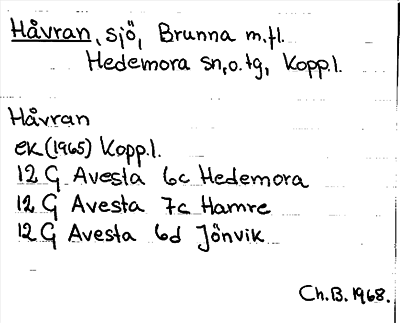 Håvran, sjö, Brunna m.fl.
Hedemora sn, o. tg, Kopp.l.
Håvran
ek (1965) Kopp.l.
12 G Avesta 6c Hedemora
12 G Avesta 7c Hamre
12 G Avesta 6d Jönvik
Ch.B. 1968.